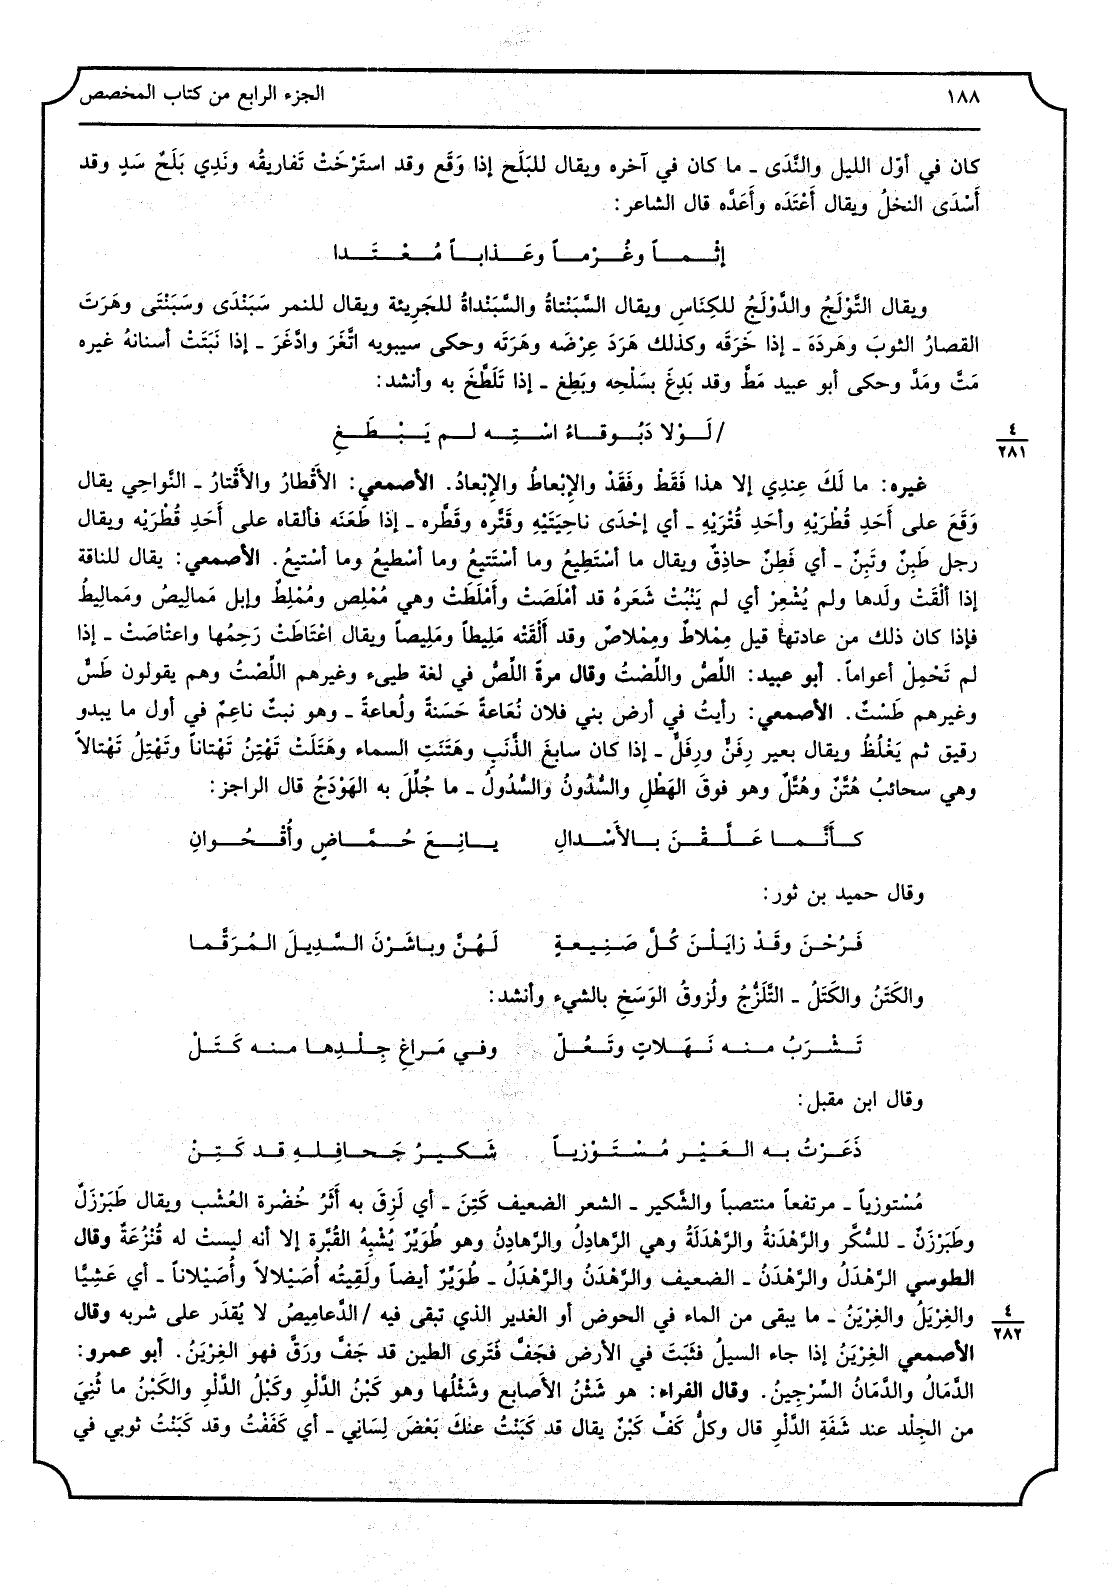 ١٨٨
الجزء الرابع من كتاب المخصص
كان في أوّل الليل والنَّدَى ـ ما كان في آخره ويقال للبَلَح إذا وَقَع وقد استَرْخَتْ تَفاريقُه ونَدِي بَلَحٌ سَدٍ وقد
أَسْدَى النخلُ ويقال أَعْتَدَه وأَعَدَّه قال الشاعر:
إثْـمـاً وغُـرْمـاً وعَـذاباً مُـعْـتَـدا
ويقال التَّوْلَجُ والدَّوْلَجُ للكِنَاسِ ويقال السَّبَنْتاةُ والسَّبَنْداةُ للجَرِيئة ويقال للنمر سَبَنْدَى وسَبَنْتَى وهَرَتَ
القصارُ الثوبَ وهَردَهَ ـ إذا خَرَقَه وكذلك هَرَدَ عِرْضَه وهَرَتَه وحكى سيبويه اتَّغَرَ وادَّغَرَ ـ إذا نَبَتَتْ أسنانهُ غيره
مَتَّ ومَدَّ وحكى أبو عبيد مَطَّ وقد بَدِغَ بسَلْحِه وبَطِغ ـ إذا تَلَطَّخَ به وأنشد:
/لَـوْلا دَبُـوقـاءُ اسْـتِـه لـم يَـبْـطَـغِ
٤
٢٨١
غيره: ما لَكَ عِندِي إلا هذا فَقَطْ وفَقَدْ والإبْعاطُ والإبْعادُ. الأصمعي: الأَقْطارُ والأَقْتارُ ـ النَّواحِي يقال
وَقَعَ على أَحَدِ قُطْرَيْهِ وأحَدِ قُتْرَيْهِ ـ أي إحْدَى ناحِيَتَيْهِ وقَتَّره وقَطَّره ـ إذا طَعَنَه فألقاه على أَحَدِ قُطْرَيْه ويقال
رجل طَبِنٌ وتَبِنٌ ـ أي فَطِنٌ حاذِقٌ ويقال ما أسْتَطِيعُ وما أسْتَتيعُ وما أسْطيعُ وما أسْتيعُ. الأصمعي: يقال للناقة
إذا ألْقَتْ ولَدها ولم يُشْعِرْ أي لم يَنْبُتْ شَعَرهُ قد أمْلَصَتْ وأَمْلَطَتْ وهي مُمْلِص ومُمْلِطٌ وإبل مَمالِيصُ ومَمالِيطُ
فإذا كان ذلك من عادتها قيل مِمْلاطٌ ومِمْلاصٌ وقد ألْقَتْه مَلِيطاً ومَلِيصاً ويقال اعْتَاطَتْ رَحِمُها واعتاصَتْ ـ إذا
لم تَحْمِلْ أعواماً. أبو عبيد: اللَّصُّ واللَّصْتُ وقال مرة اللَّصُّ في لغة طيىء وغيرهم اللَّصْتُ وهم يقولون طَسٌّ
وغيرهم طَسْتٌ. الأصمعي: رأيتُ في أرض بني فلان نُعَاعةً حَسَنةً ولُعاعةً ـ وهو نبتٌ ناعِمٌ في أول ما يبدو
رقيق ثم يَغْلُظُ ويقال بعير رِفَنٌّ ورِفَلٌّ ـ إذا كان سابغَ الذَّنَبِ وهَتَنَتِ السماء وهَتَلَتْ تَهْتِنُ تَهْتاناً وتَهْتِلُ تَهْتالاً
وهي سحائبُ هُتَّنٌ وهُتَّلٌ وهو فوقَ الهَطْلِ والسُّدُونُ والسُّدُولُ ـ ما جُلِّلَ به الهَوْدَجُ قال الراجز:
كـأَنَّـمـا عَـلَّـقْـنَ بـالأَسْـدالِ يـانِـعَ حُـمَّـاضٍ وأُقْـحُـوانِ
وقال حميد بن ثور:
فَـرُحْـنَ وقَـدْ زايَـلْـنَ كُـلَّ صَـنِـيـعـةٍ لَـهُنَّ وبـاشَـرْنَ السَّـدِيلَ المُـرَقَّـما
والكَتَنُ والكَتَلُ ـ التَّلَزُّجُ ولُزوقُ الوَسَخِ بالشيء وأنشد:
تَـشْـرَبُ مـنـه نَـهَـلاتٍ وتَـعُـلّ وفـي مَـراغِ جِـلْـدِهـا مـنـه كَـتَـلْ
وقال ابن مقبل:
ذَعَـرْتُ بـه الـعَـيْـر مُـسْـتَـوْزِيـاً شَـكـيـرُ جَـحـافِـلـهِ قـد كَـتِـنْ
مُسْتوزياً ـ مرتفعاً منتصباً والشَّكير ـ الشعر الضعيف كَتِنَ ـ أي لَزِقَ به أَثَرُ خُضْرة العُشْب ويقال طَبَرْزَلٌ
وطَبَرْزَنٌ ـ للسُّكَّر والرَّهْدَنةُ والرَّهْدَلَةُ وهي الرَّهادِلُ والرَّهادِنُ وهو طُوَيْرٌ يُشْبِهُ القُبَّرة إلا أنه ليستْ له قُنْزُعَةٌ وقال
الطوسي الرَّهْدَلُ والرَّهْدَنُ ـ الضعيف والرَّهْدَنُ والرَّهْدَلُ ـ طُوَيْرٌ أيضاً ولَقِيتُه أُصَيْلالاً وأُصَيْلاناً ـ أي عَشِيًّا
والغِرْيَلُ والغِرْيَنُ ـ ما يبقى من الماء في الحوض أو الغدير الذي تبقى فيه /الدَّعامِيصُ لا يُقدَر على شربه وقال
٤
٢٨٢
الأصمعي الغِرْيَنُ إذا جاء السيلُ فثَبَتَ في الأرض فجَفَّ فَتَرى الطين قد جَفَّ ورَقَّ فهو الغِرْيَنُ. أبو عمرو:
الدَّمَالُ والدَّمَانُ السَّرْجِينُ. وقال الفراء: هو شَثْنُ الأصابع وشَثْلُها وهو كَبْنُ الدَّلْو وكَبْلُ الدَّلْوِ والكَبْنُ ما ثُنِيَ
من الجِلْد عند شَفَةِ الدَّلْوِ قال وكلُّ كَفٍّ كَبْنٌ يقال قد كَبَنْتُ عنكَ بَعْضَ لِسَانِي ـ أي كَفَفْتُ وقد كَبَنْتُ ثوبي في